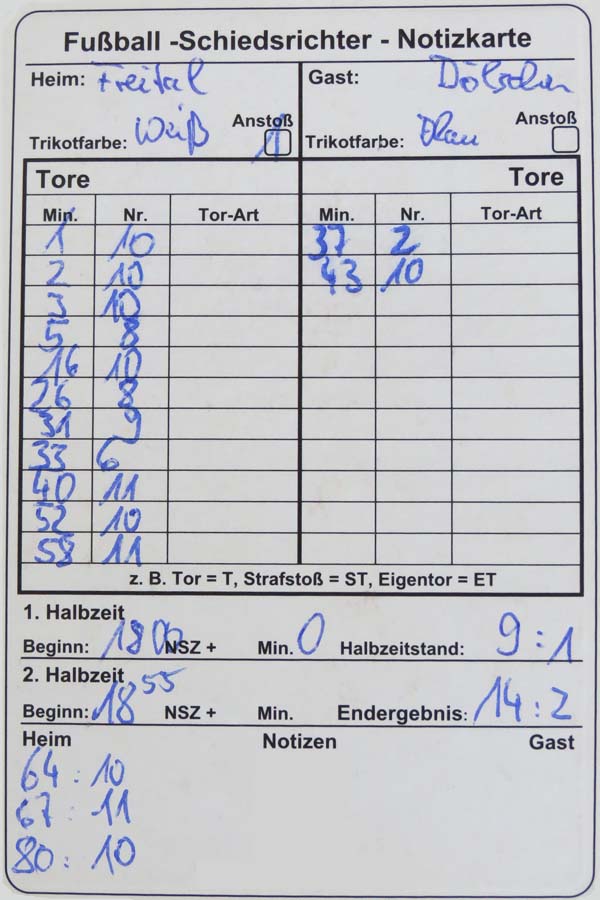 Fußball -Schiedsrichter - Notizkarte
Heim: Freital Gast: Dölzschen
Trikotfarbe: Weiß Anstoß 1 Trikotfarbe: Blau Anstoß
Tore Tore
Min. Nr. Tor-Art Min. Nr. Tor-Art
1 10 37 2
2 10 43 10
3 10
5 8
16 10
26 8
31 9
33 6
40 11
52 10
58 11
z. B. Tor = T, Strafstoß = ST, Eigentor = ET
1. Halbzeit
Beginn: 18 00 NSZ + Min. 0 Halbzeitstand: 9 : 1
2. Halbzeit
Beginn: 18 55 NSZ + Min. Endergebnis: 14 : 2
Heim Notizen Gast
64 : 10
67 : 11
80 : 10